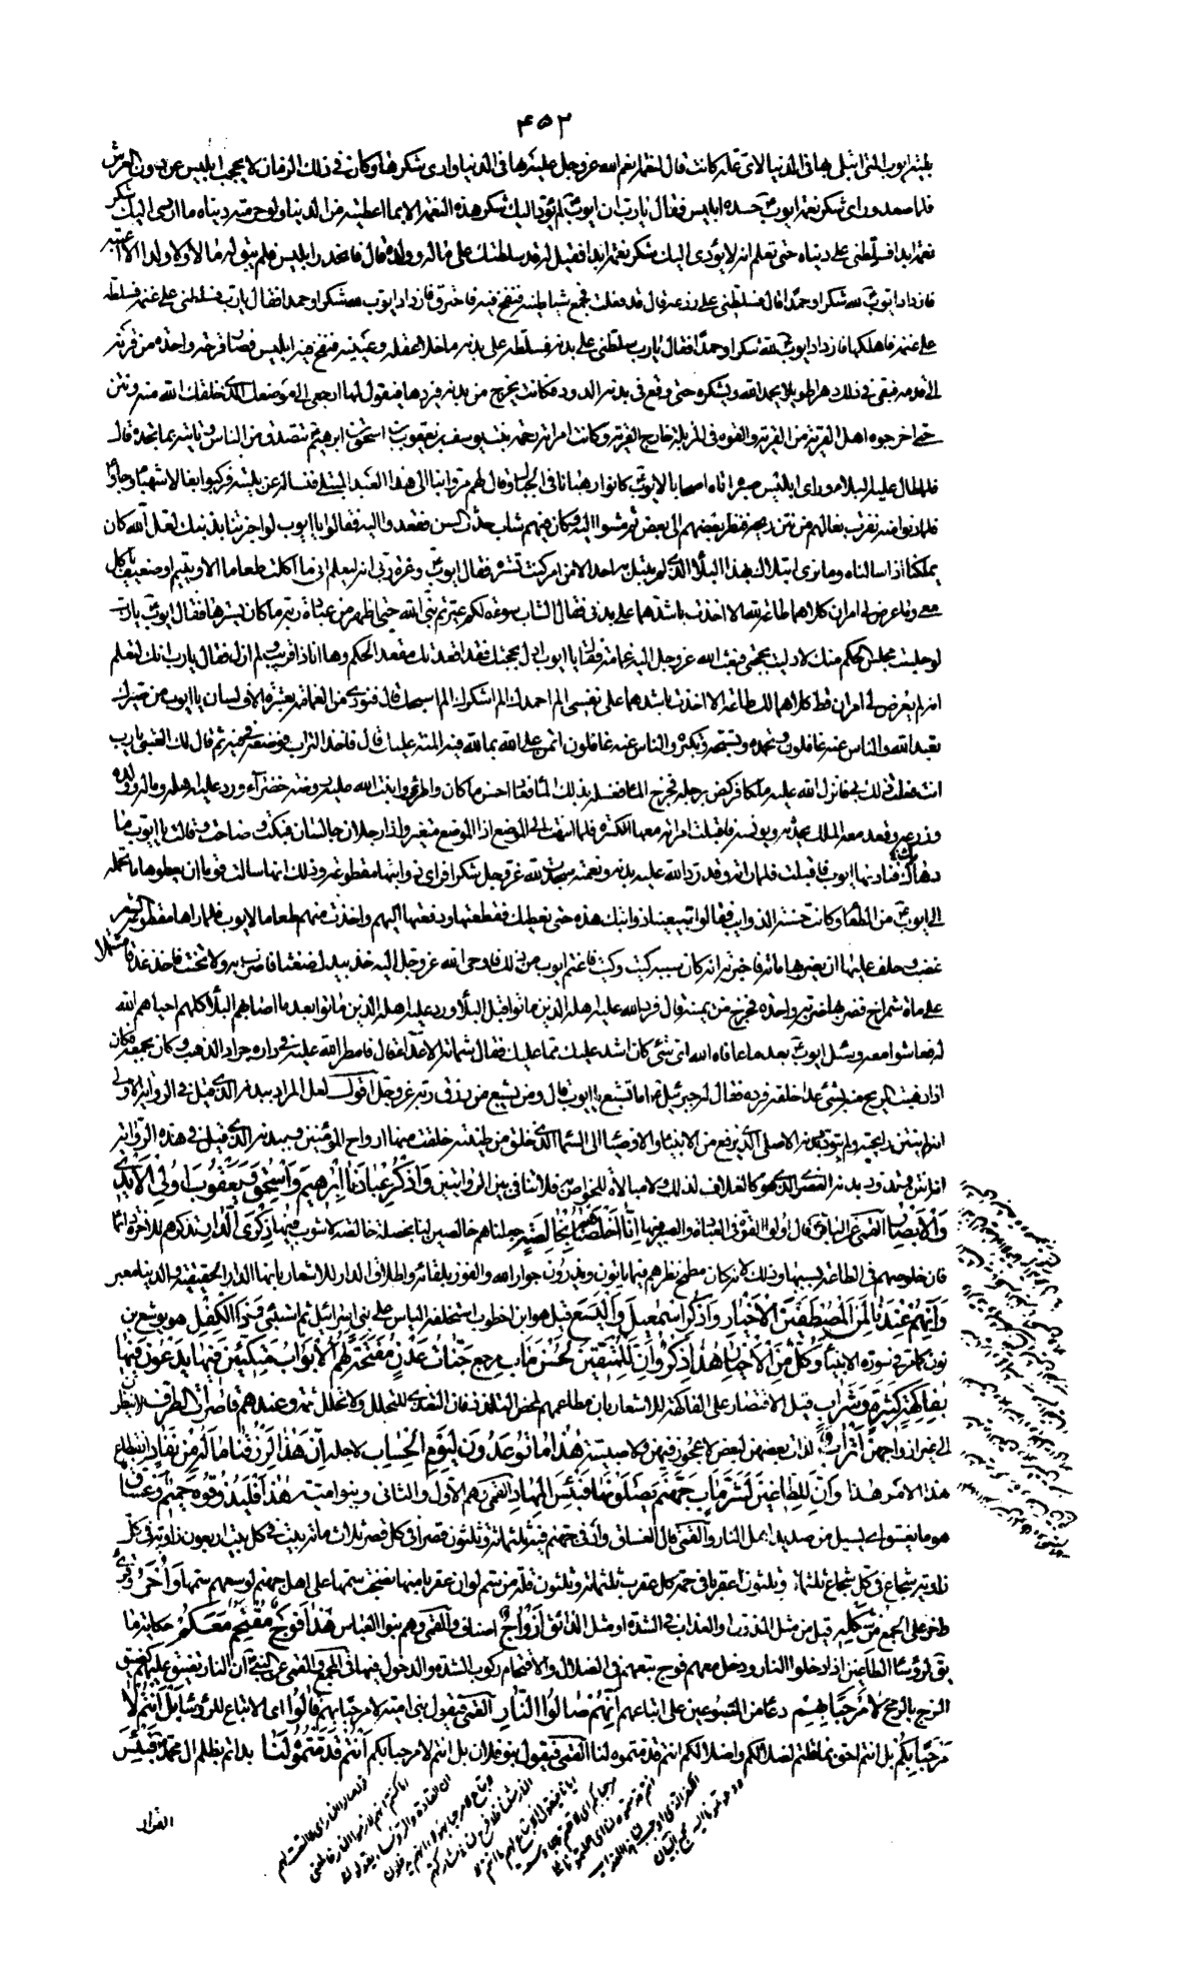 ٤٥٢
بليته ايوب التى ابتلى بها فى الدنيا لاى علة كانت قال لنعمة انعم الله عز وجل عليه بها فى الدنيا وادى شكرها وكان فى ذلك الزمان لا يحجب ابليس عن دون العرش
فلما صعد وراى شكر نعمة ايوب حسده ابليس فقال يا رب ان ايوب لم يؤد اليك شكر هذه النعمة الا بما اعطيته من الدنيا ولو حرمته دنياه ما ادى اليك شكر
نعمة ابدا فسلطنى على دنياه حتى تعلم انه لا يؤدى اليك شكر نعمة ابدا فقيل له قد سلطتك على ماله وولده قال فانحدر ابليس فلم يبق له مالا ولا ولدا الا اعطبه
فازداد ايوب لله شكرا وحمدا قال فسلطنى على زرعه قال قد فعلت فجمع شياطينه فنفخ فيه فاحترق فازداد ايوب لله شكرا وحمدا فقال يا رب فسلطنى على غنمه فسلطه
على غنمه فاهلكها فازداد ايوب لله شكرا وحمدا فقال يا رب سلطنى على بدنه فسلطه على بدنه ما خلا عقله وعينيه فنفخ فيه ابليس فصار قرحة واحدة من قرنه
الى قدمه فبقى فى ذلك دهرا طويلا يحمد الله ويشكره حتى وقع فى بدنه الدود فكانت تخرج من بدنه فيردها فيقول لها ارجعى الى موضعك الذى خلقك الله منه ونتن
حتى اخرجوه اهل القرية من القرية والقوه فى المزبلة خارج القرية وكانت امراته رحمة بنت يوسف بن يعقوب بن اسحق بن ابرهيم تتصدق من الناس وتاتيه بما تجده قال
فلما طال عليه البلاء وراى ابليس صبره اتاه اصحابا لايوب كانوا رهبانا فى الجبال وقال لهم مروا بنا الى هذا العبد المبتلى فنساله عن بليته فركبوا بغالا شهبا وجاؤا
فلما دنوا منه نفرت بغالهم من نتن ريحه فنظر بعضهم الى بعض ثم مشوا اليه وكان فيهم شاب حدث السن فقعدوا اليه فقالوا يا ايوب لو اخبرتنا بذنبك لعل الله كان
يهلكنا اذا سالناه وما نرى ابتلاك بهذا البلاء الذى لم يبتل به احد الا من امر كنت تستره فقال ايوب وعزة ربى انه ليعلم انى ما اكلت طعاما الا ويتيم او ضعيف ياكل
معى وما عرض لى امران كلاهما طاعة لله الا اخذت باشدهما على بدنى فقال الشاب سوءة لكم عيرتم نبى الله حتى اظهر من عبادة ربه ما كان يسترها فقال ايوب يا رب
لو جلست مجلس الحكم منك لادليت بحجتى فبعث الله عز وجل اليه غمامة فقال يا ايوب ادل بحجتك فقد اقعدتك مقعد الحكم وها انا ذا قريب ولم ازل فقال يا رب انك لتعلم
انه لم يعرض لى امران قط كلاهما لك طاعة الا اخذت باشدهما على نفسى الم احمدك الم اشكرك الم اسبحك قال فنودى من الغمامة بعشرة الاف لسان يا ايوب من صيرك
تعبد الله والناس عنه غافلون وتحمده وتسبحه وتكبره والناس عنه غافلون اتمن على الله بما لله فيه المنة عليك قال فاخذ التراب فوضعه فى فيه ثم قال لك العتبى يا رب
انت فعلت ذلك بى فانزل الله عليه ملكا فركض برجله فخرج الماء فغسله بذلك الماء فعاد احسن ما كان واطرء وانبت الله عليه روضة خضراء ورد عليه اهله وماله وولده
وزرعه وقعد معه الملك يحدثه ويونسه فاقبلت امراته معها الكسرة فلما انتهت الى الموضع اذا الموضع متغير واذا رجلان جالسان فبكت وصاحت وقالت يا ايوب ما
دهاك فناداها ايوب فاقبلت فلما راته وقد رد الله عليه بدنه ونعمته سجدت لله عز وجل شكرا فراى ذوابتها مقطوعة وذلك انها سالت قوما ان يعطوها ما تحمله
الى ايوب من الطعام وكانت حسنة الذوايب فقالوا تبيعينا ذوائبك هذه حتى نعطيك فقطعتها ودفعتها اليهم واخذت منهم طعاما لايوب فلما راها مقطوعة الشعر
غضب وحلف عليها ان يضربها مائة فاخبرته انه كان سببه كيت وكيت فاغتم ايوب من ذلك فاوحى الله عز وجل اليه خذ بيدك ضغثا فاضرب به ولا تحنث فاخذ عذقا مشتملا
على مائة شمراخ فضربها ضربة واحدة فخرج من يمينه قال فرد الله عليه اهله الذين ماتوا قبل البلاء ورد عليه اهله الذين ماتوا بعد ما اصابهم البلاء كلهم احياهم الله
له فعاشوا معه وسئل ايوب بعد ما عافاه الله اى شئ كان اشد عليك مما مر عليك فقال شماتة الاعداء قال فامطر الله عليه فى داره جراد الذهب وكان يجمعه فكان
اذا ذهبت الريح منه بشئ عدا خلفه فرده فقال له جبرئيل اما تشبع يا ايوب قال ومن يشبع من رزق ربه عز وجل اقول لعل المراد ببدنه الذى قيل فى الرواية الاولى
انه لم ينتن رايحته ولم يتدود بدنه الاصلى الذى يرفع من الانبياء والاوصياء الى السماء الذى خلق من طينته خلقت منها ارواح المؤمنين وببدنه الذى قيل فى هذه الرواية
انه انتن وتدود بدنه العنصرى الذى هو كالغلاف لذلك ولا مبالاة للخواص به فلا تنافى بين الروايتين وَاذْكُرْ عِبَادَنَا اِبْرٰهِيمَ وَاِسْحٰقَ وَيَعْقُوبَ اُولِى الْاَيْدِى
وَالْاَبْصَارِ القمى عن الباقر قال اولوا القوة فى العبادة والصبر فيها اِنَّا اَخْلَصْنَاهُمْ بِخَالِصَةٍ جعلناهم خالصين لنا بخصلة خالصة لا شوب فيها ذِكْرَى الدَّارِ تذكرهم للاخرة دائما
فان خلوصهم فى الطاعة بسببها وذلك لانه كان مطمح نظرهم فيما ياتون ويذرون جوار الله والفوز بلقائه واطلاق الدار للاشعار بانها الدار الحقيقية والدنيا معبر
وَاِنَّهُمْ عِنْدَنَا لَمِنَ الْمُصْطَفَيْنَ الْاَخْيَارِ وَاذْكُرْ اِسْمٰعِيلَ وَالْيَسَعَ قيل هو ابن اخطوب استخلفه الياس على بنى اسرائيل ثم استنبئ وَذَا الْكِفْلِ هو يوشع بن
نون كما مر فى سورة الانبياء وَكُلٌّ مِنَ الْاَخْيَارِ هٰذَا ذِكْرٌ وَاِنَّ لِلْمُتَّقِينَ لَحُسْنَ مَاٰبٍ مرجع جَنَّاتِ عَدْنٍ مُفَتَّحَةً لَهُمُ الْاَبْوَابُ مُتَّكِئِينَ فِيهَا يَدْعُونَ فِيهَا
بِفَاكِهَةٍ كَثِيرَةٍ وَشَرَابٍ قيل الاقتصار على الفاكهة للاشعار بان مطاعمهم لمحض التلذذ فان التغذى للتحلل ولا تحلل ثمة وَعِنْدَهُمْ قَاصِرَاتُ الطَّرْفِ لا ينظرن
الى غير ازواجهن اَتْرَابٌ لذات بعضهن لبعض لا عجوز فيهن ولا صبية هٰذَا مَا تُوعَدُونَ لِيَوْمِ الْحِسَابِ لاجله اِنَّ هٰذَا لَرِزْقُنَا مَا لَهُ مِنْ نَفَادٍ انقطاع
هٰذَا الامر هذا وَاِنَّ لِلطَّاغِينَ لَشَرَّ مَاٰبٍ جَهَنَّمَ يَصْلَوْنَهَا فَبِئْسَ الْمِهَادُ القمى هم الاول والثانى وبنو امية هٰذَا فَلْيَذُوقُوهُ حَمِيمٌ وَغَسَّاقٌ
هو ما يغسق اى يسيل من صديد اهل النار والقمى قال الغساق واد فى جهنم فيه ثلثمائة وثلثون قصرا فى كل قصر ثلاث مائة بيت فى كل بيت اربعون زاوية فى كل
زاوية شجاع فى كل شجاع ثلثمائة وثلثون عقربا فى حمة كل عقرب ثلثمائة وثلثون قلة من سم لو ان عقربا منها نضحت سمها على اهل جهنم لوسعهم سمها وَاٰخَرُ وقرئ
واخر على الجمع مِنْ شَكْلِهِ قيل من مثل المذوق او العذاب فى الشدة او مثل الذائق اَزْوَاجٌ اصناف والقمى وهم بنو العباس هٰذَا فَوْجٌ مُقْتَحِمٌ مَعَكُمْ حكاية ما
يق لرؤساء الطاغين اذا دخلوا النار ودخل معهم فوج تبعهم فى الضلال والاقتحام ركوب الشدة والدخول فيها فى المجمع والقمى عن النبى ان النار تضيق عليهم كضيق
الزج بالرمح لَا مَرْحَبًا بِهِمْ دعاء من المتبوعين على اتباعهم اِنَّهُمْ صَالُوا النَّارِ القمى فيقول بنو امية لا مرحبا بهم قَالُوا اى الاتباع للرؤساء بَلْ اَنْتُمْ لَا
مَرْحَبًا بِكُمْ بل انتم احق بما قلتم لضلالكم واضلالكم اَنْتُمْ قَدَّمْتُمُوهُ لَنَا القمى فيقول بنو فلان بل انتم لا مرحبا بكم اَنْتُمْ قَدَّمْتُمُوهُ لَنَا بداتم بظلم ال محمد فَبِئْسَ
القرار